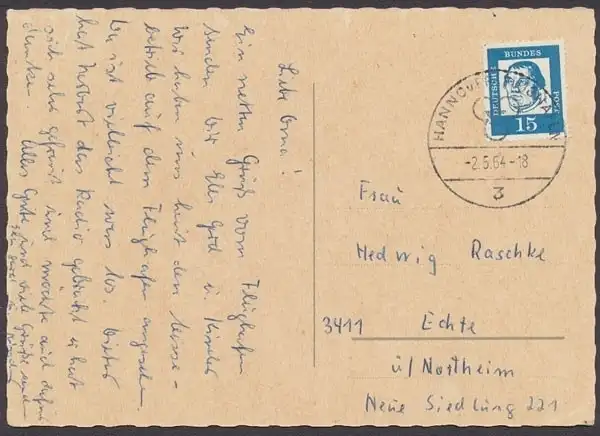 Liebe Oma!
Ein netten Gruß vom Flughafen
senden Dir Elli Gerd u. Kinder
Wir haben uns heut den Messe-
betrieb auf dem Flughafen angesehen.
Da ist vielleicht was los.
hat Herbert das Radio gebracht er hat
sich sehr gefreut und möchte auch dafür
danken. Alles Gute und viele Grüße
DEUTSCHE
BUNDES
POST
15
HANNOVER
-2.5.64-18
3
Frau
Hedwig Raschke
3411 Echte
ü/Northeim
Neue Siedlung 221